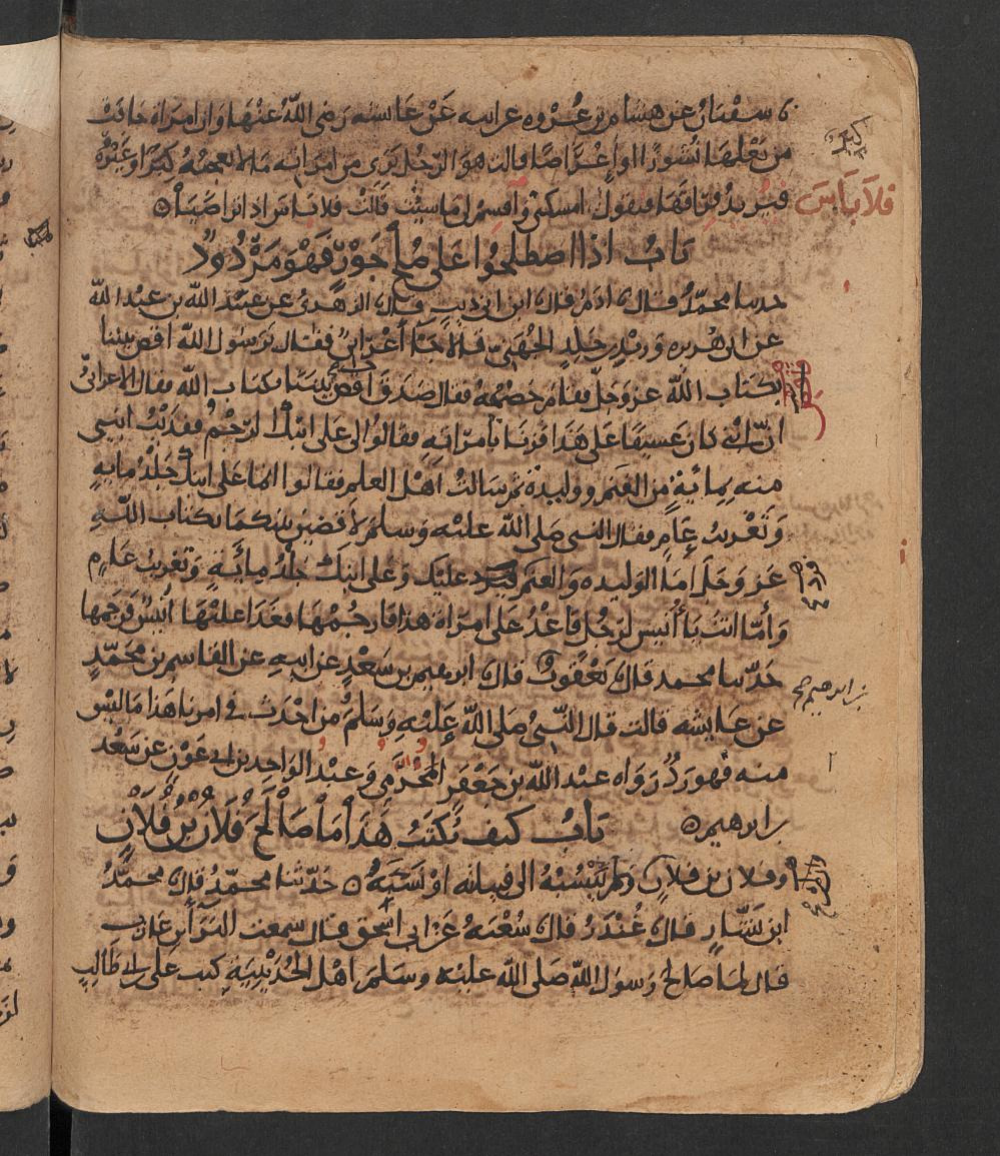 سفيان عن هشام بن عروه عن ابيه عن عايشه رضي الله عنها وان امراه خافت
من بعلها نشوزا او اعراضا قالت هو الرجل يرى من امراته ما لا يعجبه كبرا او غيره
فيريد فراقها فتقول امسكني واقسم لي ما شئت قالت فلا باس اذا تراضيا
فلا باس
باب اذا اصطلحوا على صلح جور فهو مردود
حدثنا محمد قال ادم قال ابن ابي ذيب قال الزهري عن عبيد الله بن عبد الله
عن ابي هريره وزيد بن خلد الجهني قالا جا اعرابي فقال يرسول الله اقض بيننا
بكتاب الله عز وجل فقام خصمه فقال صدق اقض بيننا بكتاب الله فقال الاعرابي
ان ابني كان عسيفا على هذا فزنا بامراته فقالوا لي على ابنك الرجم ففديت ابني
منه بمائة من الغنم ووليدة ثم سالت اهل العلم فقالوا انما على ابنك جلد مايه
وتغريب عام فقال النبي صلى الله عليه وسلم لاقضين بينكما بكتاب الله
عز وجل اما الوليده والغنم فرد عليك وعلى ابنك جلد مائة وتغريب عام
فرد
واما انت يا انيس لرجل فاغد على امراة هذا فارجمها فغدا عليها انيس فرجمها
حدثنا محمد قال يعقوب قال ابرهيم بن سعد عن ابيه عن القاسم بن محمد
بن ابرهيم صح
عن عايشه قالت قال النبي صلى الله عليه وسلم من احدث في امرنا هذا ما ليس
منه فهو رد رواه عبد الله بن جعفر المخرمي وعبد الواحد بن ابي عون عن سعد
بن ابرهيم باب كيف يكتب هذا ما صالح فلان بن فلان
وفلان بن فلان ولم ينسبه الى قبيلته او نسبه حدثنا محمد قال محمد
ابن بشار قال غندر قال شعبه عن ابي اسحق قال سمعت البرا بن عازب
قال لما صالح رسول الله صلى الله عليه وسلم اهل الحديبية كتب علي بن ابي طالب